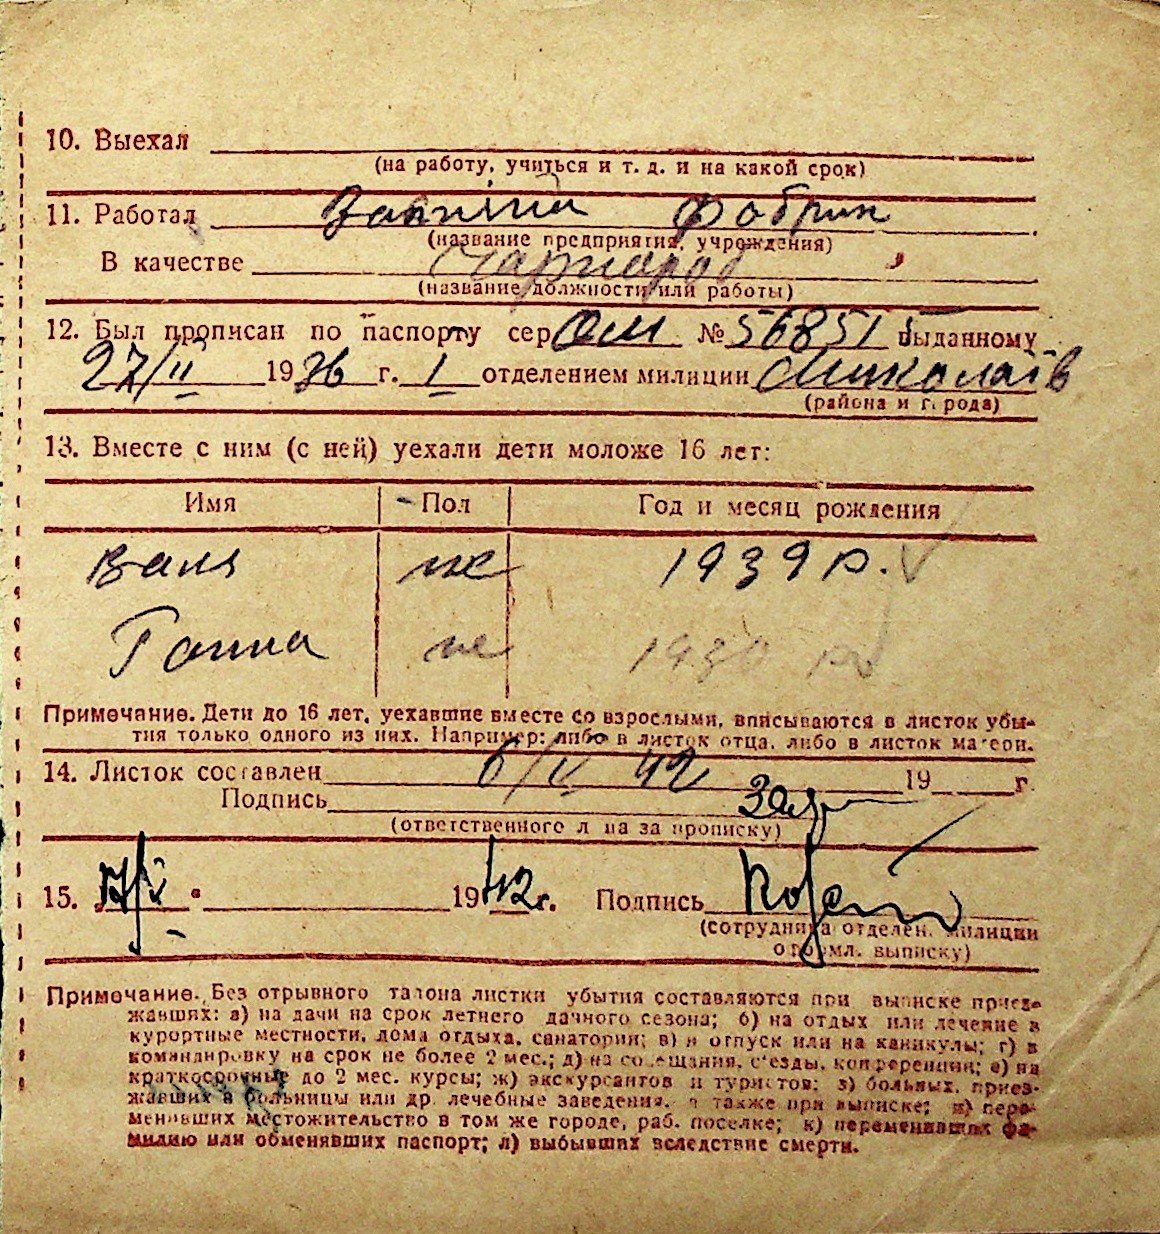 10. Выехал
(на работу, учиться и т. д. и на какой срок)
11. Работал Фабрик
(название предприятия, учреждения)
В качестве
(название должности или работы)
12. Был прописан по паспорту сер ОМ № 568515 выданному
27/II 1936 г. 1 отделением милиции Миколаїв
(района и города)
13. Вместе с ним (с ней) уехали дети моложе 16 лет:
Имя Пол Год и месяц рождения
Валя ж 1939 р.
Ганна ж 1930 р.
Примечание. Дети до 16 лет, уехавшие вместе со взрослыми, вписываются в листок убы-
тия только одного из них. Например: либо в листок отца, либо в листок матери.
14. Листок составлен 6/V 42 19 г.
Подпись
(ответственного лица за прописку)
15. 17/V 1942 г. Подпись
(сотрудника отделен. милиции
оформл. выписку)
Примечание. Без отрывного талона листки убытия составляются при выписке приез-
жавших: а) на дачи на срок летнего дачного сезона; б) на отдых или лечение в
курортные местности, дома отдыха, санатории; в) в отпуск или на каникулы; г) в
командировку на срок не более 2 мес.; д) на совещания, с'езды, конференции; е) на
краткосрочные до 2 мес. курсы; ж) экскурсантов и туристов; з) больных, приез-
жавших в больницы или др. лечебные заведения, а также при выписке; и) пере-
менивших местожительство в том же городе, раб. поселке; к) переменивших фа-
милию или обменявших паспорт; л) выбывших вследствие смерти.